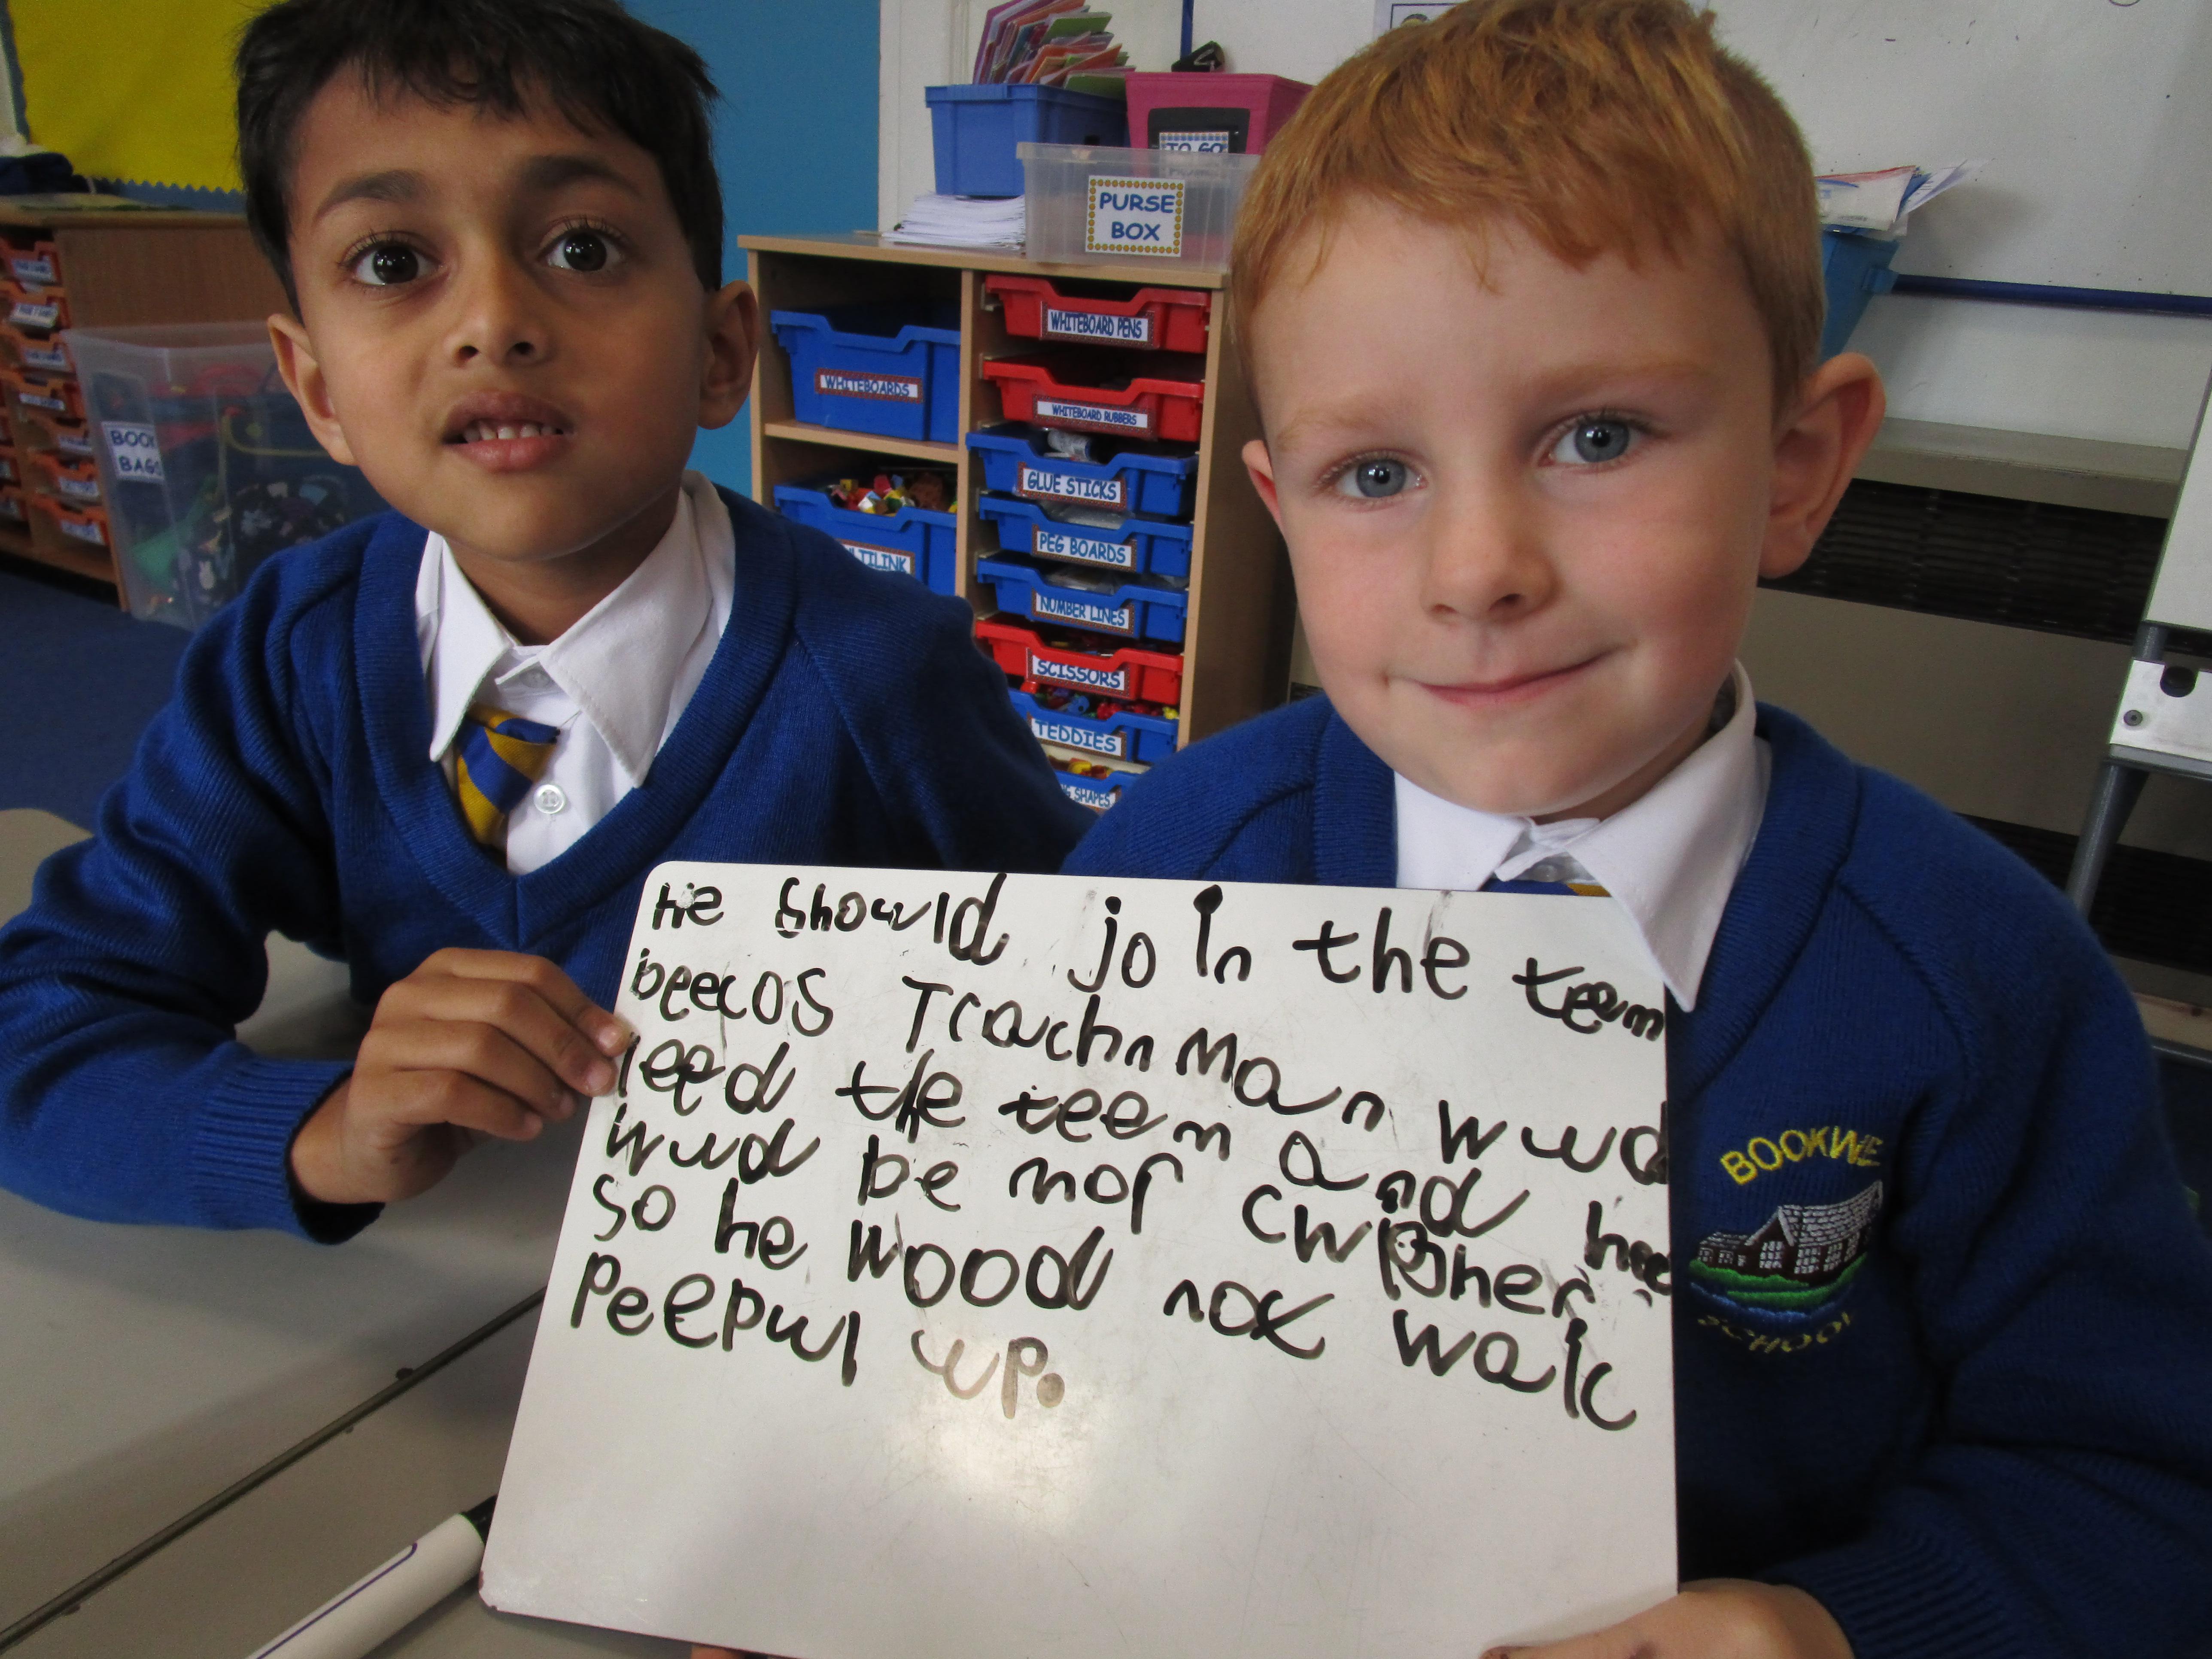 TO GO
PURSE
BOX
WHITEBOARD PENS
WHITEBOARDS
WHITEBOARD RUBBERS
GLUE STICKS
PEG BOARDS
NUMBER LINES
SCISSORS
TEDDIES
SHAPES
BOOK
BAGS
He should join the teem
beecos Trachn Man wud
leed the teem and hee
wud be mor cwisher
so he wood not walk
peepul up.
BOOKWE
SCHOOL